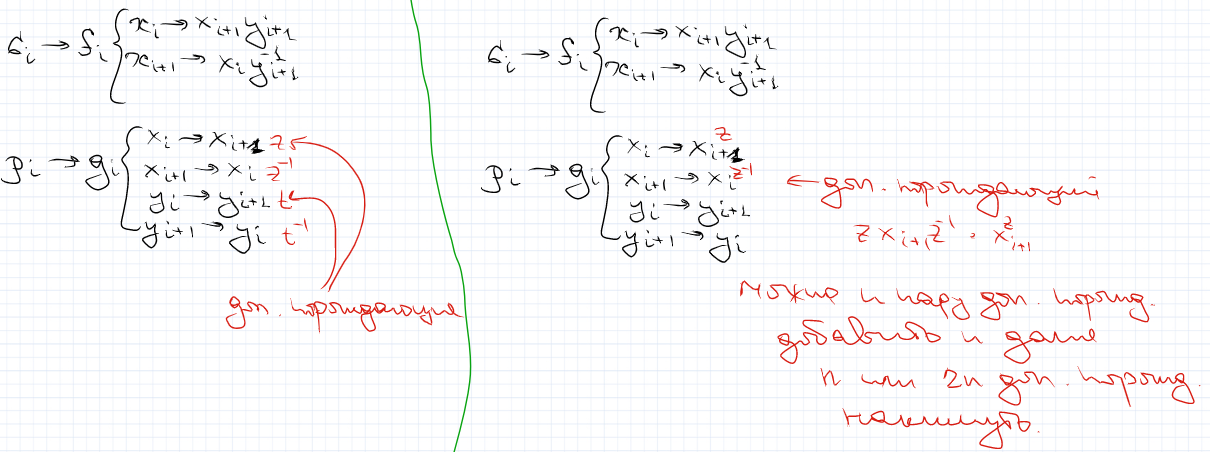 σᵢ → fᵢ { xᵢ → xᵢ₊₁ yᵢ₊₁
xᵢ₊₁ → xᵢ yᵢ₊₁⁻¹
ρᵢ → gᵢ { xᵢ → xᵢ₊₁ z
xᵢ₊₁ → xᵢ z⁻¹
yᵢ → yᵢ₊₁ t
yᵢ₊₁ → yᵢ t⁻¹
доп. порождающие
σᵢ → fᵢ { xᵢ → xᵢ₊₁ yᵢ₊₁
xᵢ₊₁ → xᵢ yᵢ₊₁⁻¹
ρᵢ → gᵢ { xᵢ → xᵢ₊₁ᶻ
xᵢ₊₁ → xᵢ^z⁻¹
yᵢ → yᵢ₊₁
yᵢ₊₁ → yᵢ
← доп. порождающий
z xᵢ₊₁ z⁻¹ = xᵢ₊₁ᶻ
можно и пару доп. порожд.
добавить и даже
n или 2n доп. порожд.
накинуть.